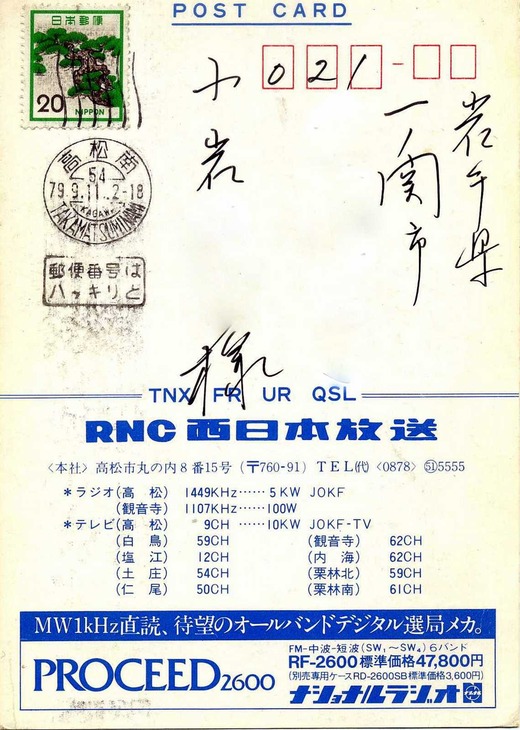 POST CARD
日本郵便
20
NIPPON
021
岩手県
一ノ関市
小岩
様
高松南
54
79.9.11..2-18
KAGAWA
TAKAMATSUMINAMI
郵便番号は
ハッキリと
TNX FR UR QSL
RNC 西日本放送
〈本社〉高松市丸の内8番15号(〒760-91) TEL(代)〈0878〉(51)5555
*ラジオ(高 松) 1449KHz……5KW JOKF
(観音寺) 1107KHz……100W
*テレビ(高 松) 9CH……10KW JOKF-TV
(白 鳥) 59CH (観音寺) 62CH
(塩 江) 12CH (内 海) 62CH
(土 庄) 54CH (栗林北) 59CH
(仁 尾) 50CH (栗林南) 61CH
MW1kHz直読、待望のオールバンドデジタル選局メカ。
PROCEED2600
FM-中波-短波(SW₁〜SW₄)6バンド
RF-2600標準価格47,800円
(別売専用ケースRD-2600SB標準価格3,600円)
ナショナルラジオ